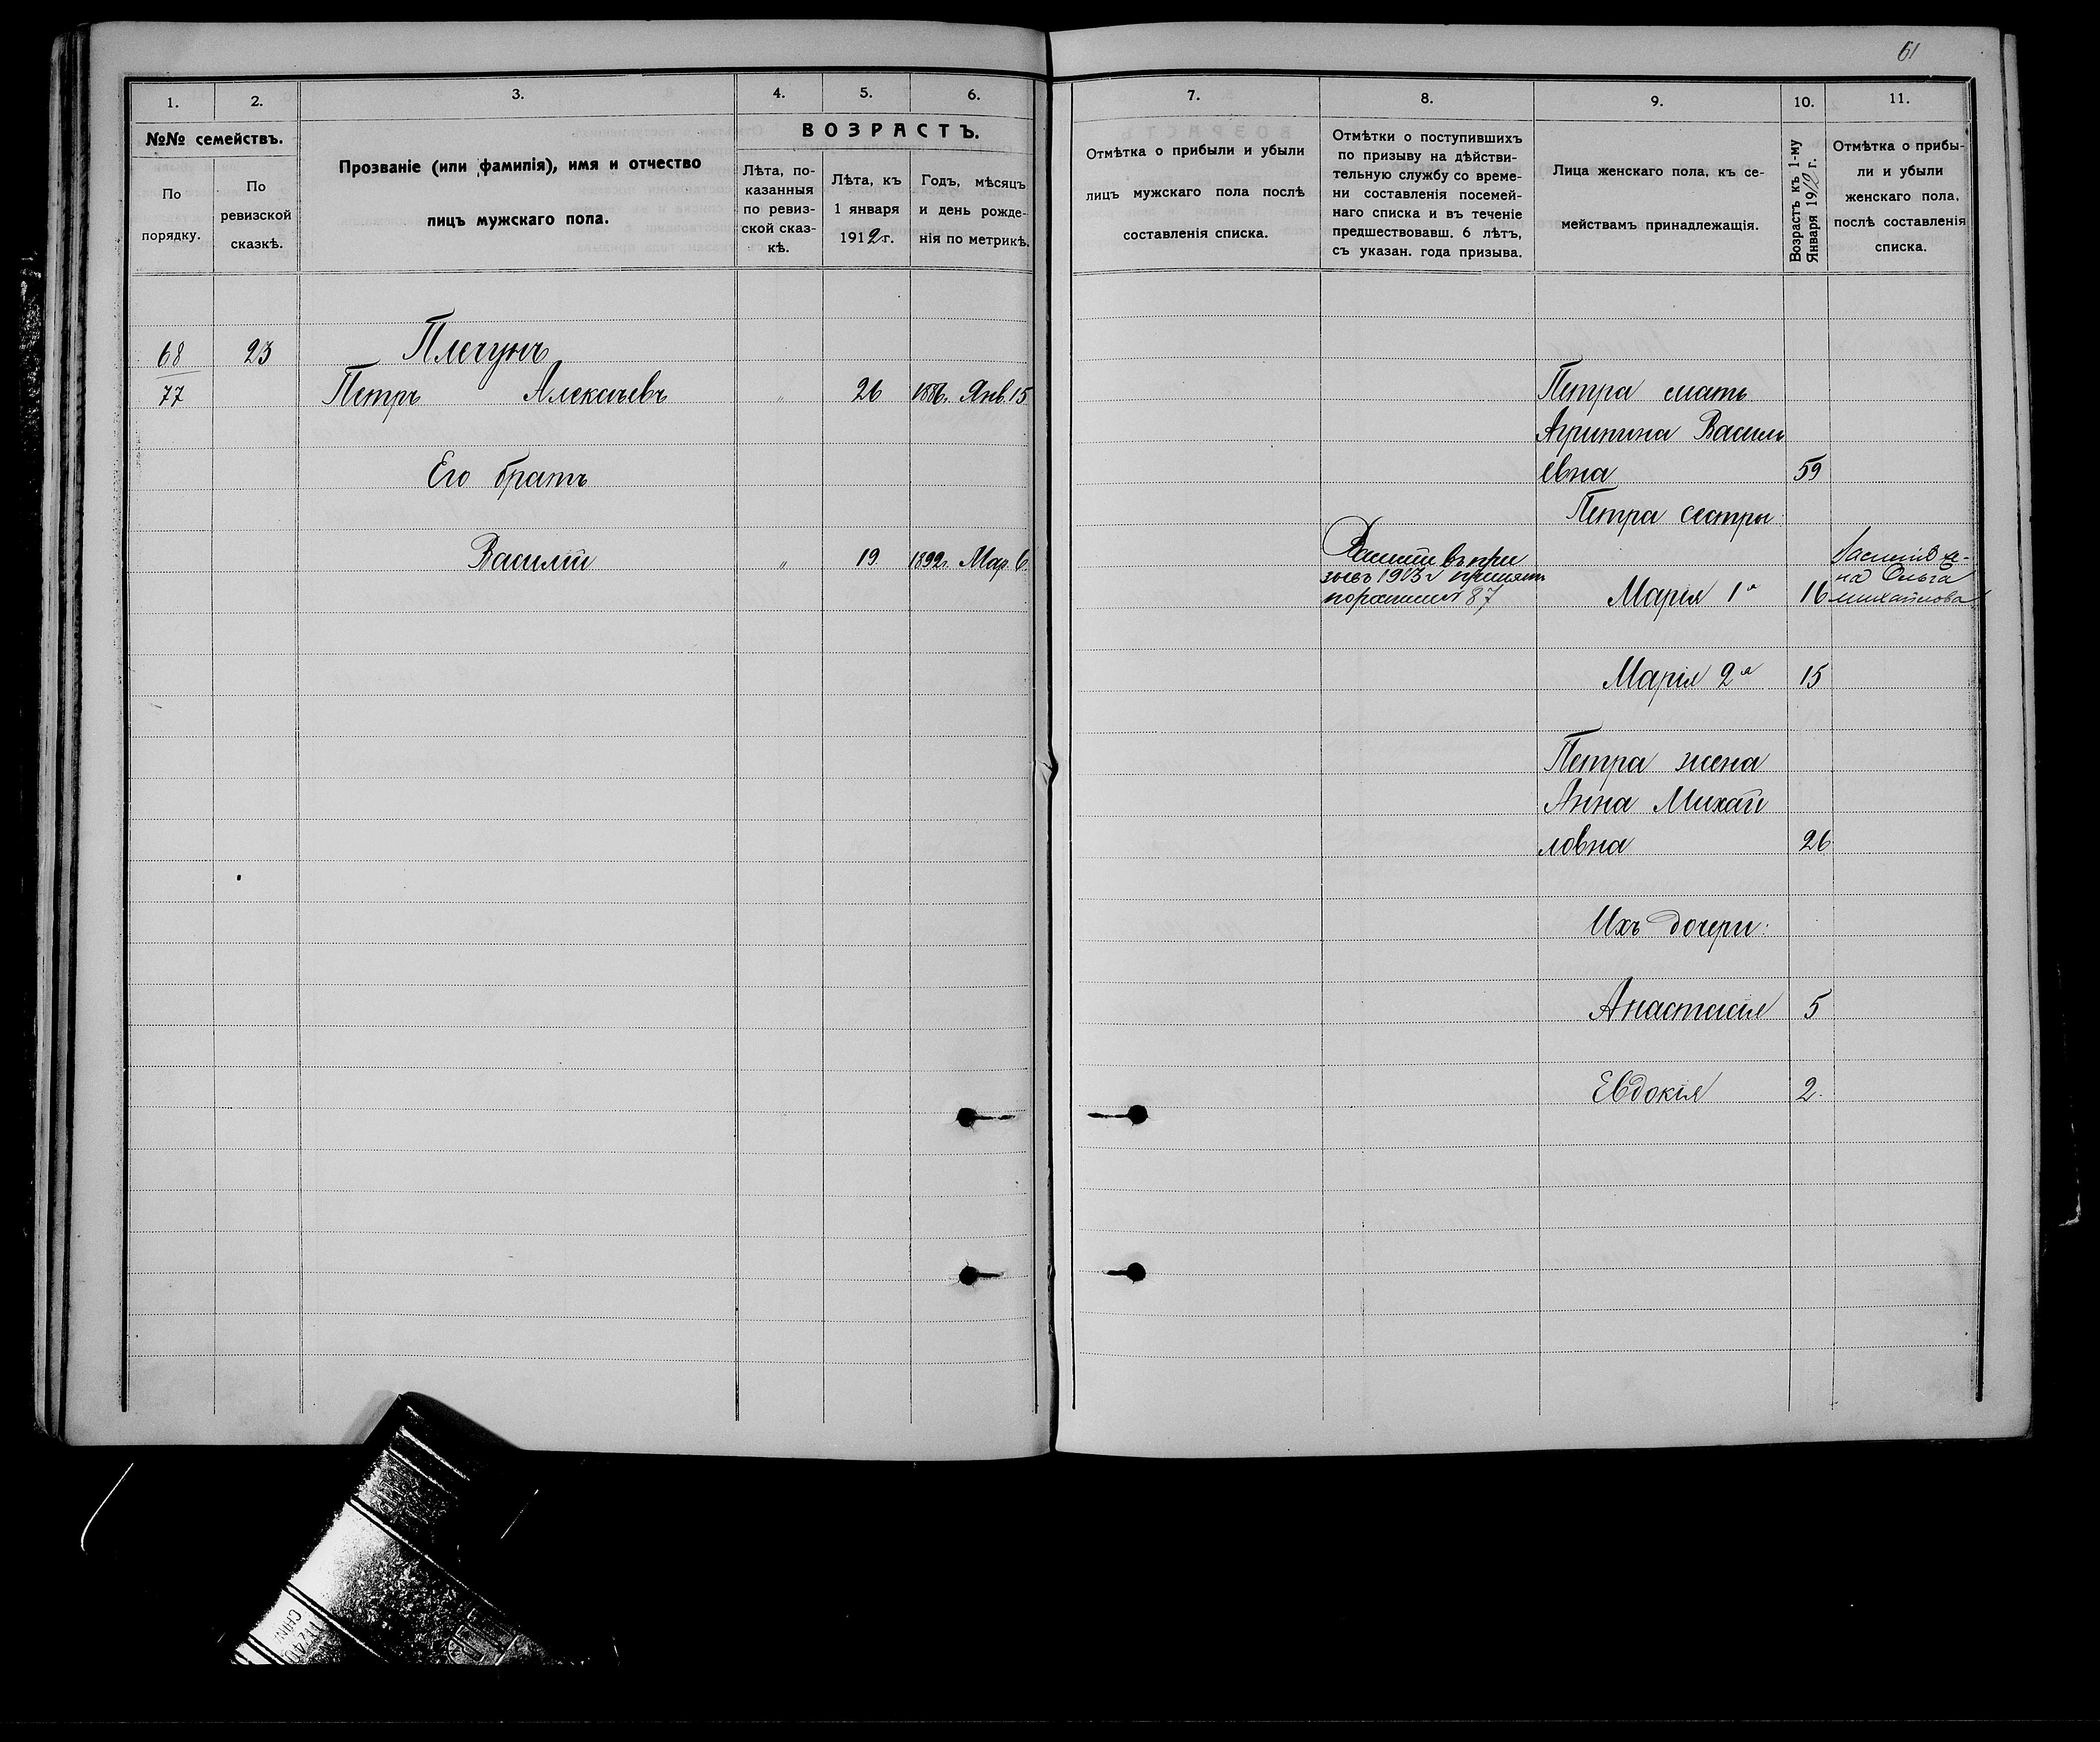 61
1.
2.
3.
4.
5.
6.
№№ семействъ.
По
порядку.
По
ревизской
сказкѣ.
Прозваніе (или фамилія), имя и отчество
лицъ мужскаго пола.
ВОЗРАСТЪ.
Лѣта, по-
казанныя
по ревиз-
ской сказ-
кѣ.
Лѣта, къ
1 января
1912 г.
Годъ, мѣсяцъ
и день рожде-
нія по метрикѣ.
68
23
Плегунъ
77
Петръ Алексѣевъ
"
26
1886 г. Янв. 15
Его братъ
Василій
"
19
1892 г. Мар. 6
7.
8.
9.
10.
11.
Отмѣтка о прибыли и убыли
лицъ мужскаго пола послѣ
составленія списка.
Отмѣтки о поступившихъ
по призыву на дѣйстви-
тельную службу со време-
ни составленія посемей-
наго списка и въ теченіе
предшествовавш. 6 лѣтъ,
съ указан. года призыва.
Лица женскаго пола, къ се-
мействамъ принадлежащія.
Возрастъ къ 1-му
Января 1912 г.
Отмѣтка о прибы-
ли и убыли
женскаго пола,
послѣ составленія
списка.
Петра мать
Агрипина Василь
евна
59
Петра сестры:
Василій въ при
зывъ 1913 г принятъ
87
Марія 1я
16
Василія же-
на Ольга
Михайлова
Марія 2я
15
Петра жена
Анна Михай
ловна
26
Ихъ дочери:
Анастасія
5
Евдокія
2.